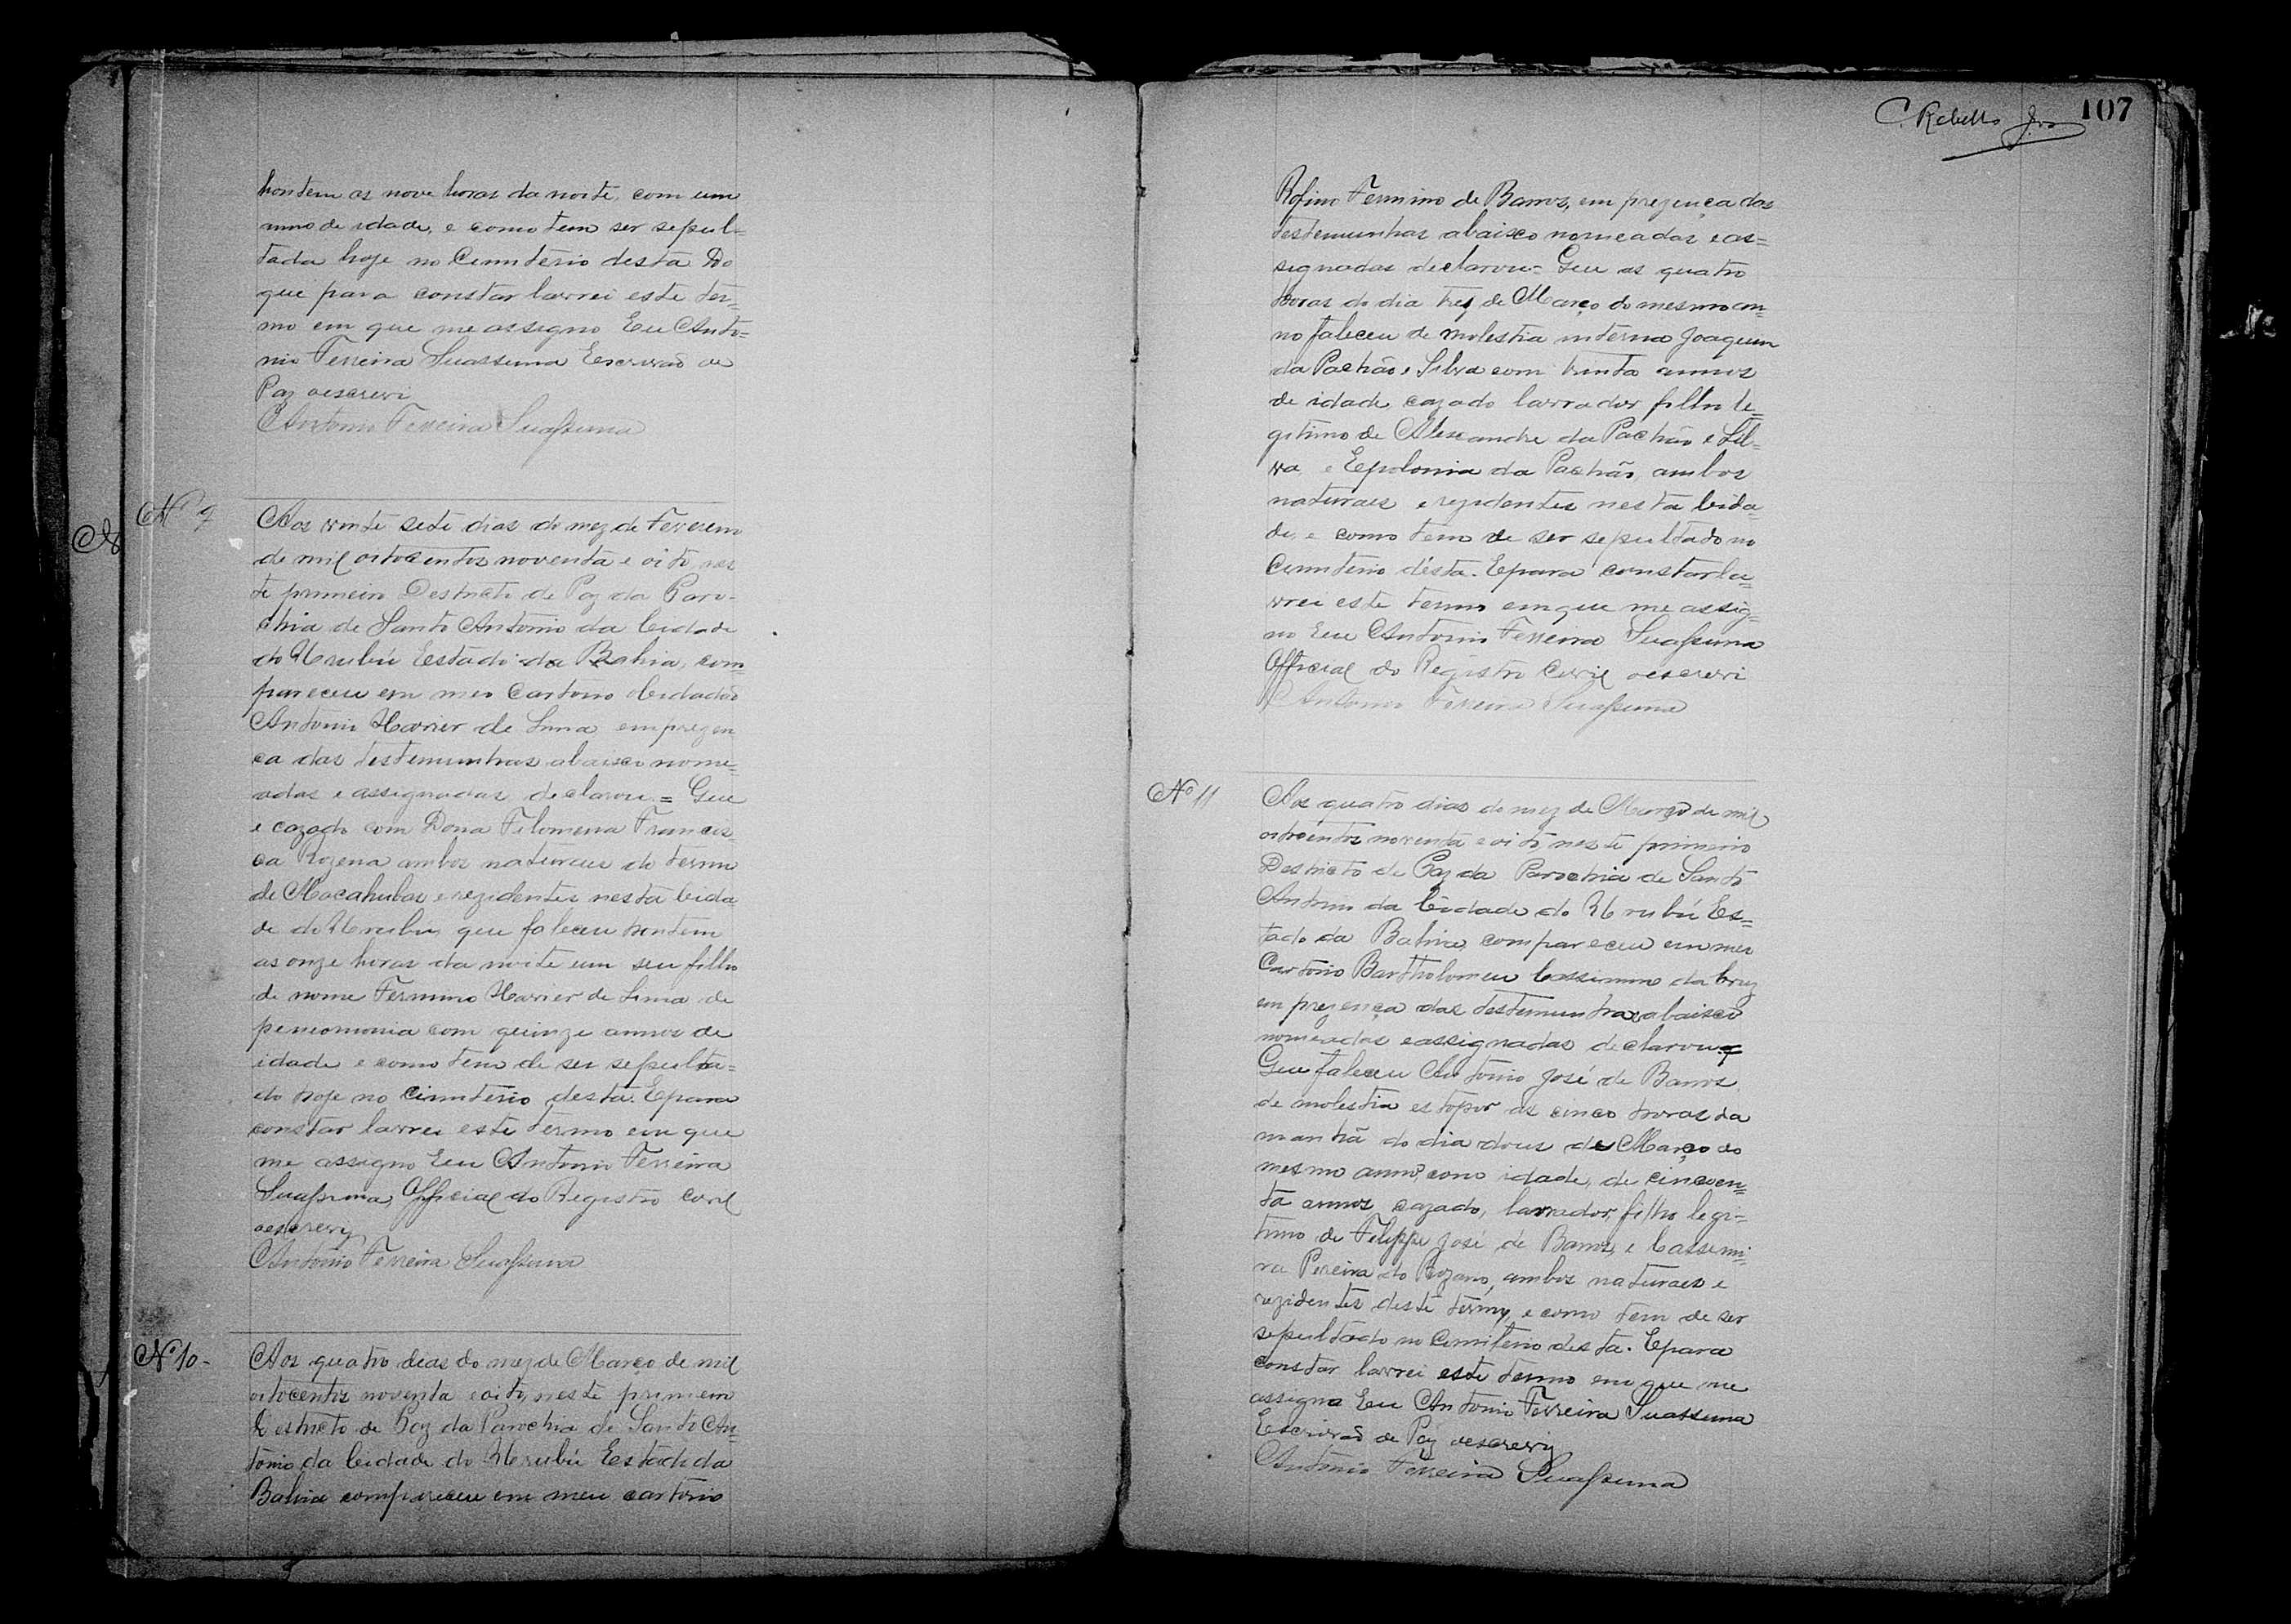 hontem as nove horas da noite, com um
anno de idade, e como tem ser sepul=
tada hoje no Cemiterio desta Do
que para constar lavrei este ter=
mo em que me assigno Eu Anto=
nio Ferreira Suassuna Escrivaõ de
Paz oescrevi
Antonio Ferreira Suassuna
Nº 9
Aos vinte sete dias do mez de Fevereiro
de mil oitocentos noventa e oito, nes
te primeiro Destricto de Paz da Paro-
chia de Santo Antonio da Cidade
do Urubú Estado da Bahia, com
pareceu em meu Cartorio oCidadão
Antonio Xavier de Lima em prezen
ca das testemunhas abaixo nome=
adas e assignadas, declarou = Que
e cazado com Dona Filomena Francis
ca Rozena ambos naturaes do termo
de Macahubas e rezidentes nesta Cida
de do Urubú, que faleceu hontem
as onze horas da noite um seu filho
de nome Fermino Xavier de Lima de
peneomonia com quinze annos de
idade e como tem de ser sepulta=
do hoje no Cimiterio desta. Epara
constar lavrei este termo em que
me assigno Eu Antonio Ferreira
Suassuna, Official do Registro Civil
oescrevy
Antonio Ferreira Suassuna
Nº 10-
Aos quatro dias do mez de Março de mil
oitocentos noventa eoito, neste primeiro
Destricto de Paz da Parochia de Santo An=
tonio da Cidade do Urubú Estado da
Bahia compareceu em meu cartorio
C. Rebello Jor
107
Rofino Fermino de Barros, em prezença das
testemunhas abaixo nomeadas eas=
signadas declarou= Que as quatro
horas do dia trez de Março do mesmo an
no faleceu de molestia interna Joaquim
da Pachão e Silva com trinta annos
de idade, cazado lavrador filho le=
gitimo de Alexandre da Pachão e Sil=
va e Epolonia da Pachão, ambos
naturaes erezidentes nesta Cida=
de, e como tem de ser sepultado no
Cemiterio désta. Epara constar la=
vrei este termo emque me assig=
no Eu Antonio Ferreira Suassuna
Official do Registro Civil oescrevi
Antonio Ferreira Suassuna
Nº 11
Aos quatro dias do mez de Março de mil
oitocentos noventa eoito, neste primeiro
Destricto de Paz da Parochia de Santo
Antonio da Cidade do Urubú Es=
tado da Bahia, compareceu em meu
Cartorio Bartholomeu Cassimiro da Cruz
em prezença das testemunhas abaixo
nomeadas eassignadas declarou=
Que faleceu Antonio José de Barros
de molestia estopor as cinco horas da
manhã do dia dous de Março do
mesmo anno, com idade, de cincoen=
ta annos, cazado, lavrador, filho legi=
timo de Felippe José de Barros, e Cassimi=
ra Pereira do Rozario, ambos naturaes e
rezidentes deste termo, e como tem de ser
sepultado no Cemiterio desta. Epara
constar lavrei este termo em que me
assigno Eu Antonio Ferreira Suassuna
Escrivaõ de Paz oescrevy
Antonio Ferreira Suassuna